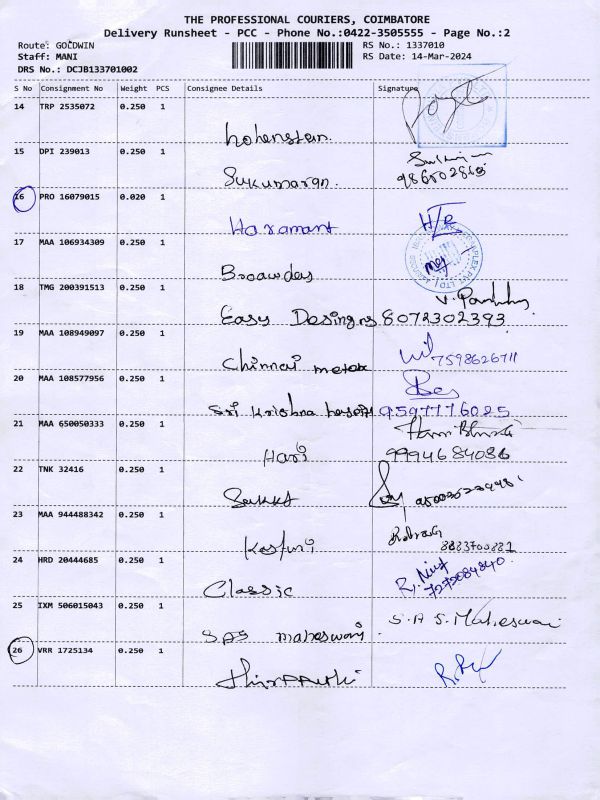 THE PROFESSIONAL COURIERS, COIMBATORE
Delivery Runsheet - PCC - Phone No.:0422-3505555 - Page No.:2
Route: GOLDWIN RS No.: 1337010
Staff: MANI RS Date: 14-Mar-2024
DRS No.: DCJB133701002
S No Consignment No Weight PCS Consignee Details Signature
14 TRP 2535072 0.250 1
hohenstein.
15 DPI 239013 0.250 1
Sukumaran.
16 PRO 16079015 0.020 1
Haramant
17 MAA 106934309 0.250 1
18 TMG 200391513 0.250 1
Easy Designs 8072302393
19 MAA 108949097 0.250 1
Chinnai metax 7598626711
20 MAA 108577956 0.250 1
Sri Krishna 9597776025
21 MAA 650050333 0.250 1
Hari 9994684086
22 TNK 32416 0.250 1
23 MAA 944488342 0.250 1
Kasturi 8883700881
24 HRD 20444685 0.250 1
Classic
25 IXM 506015043 0.250 1
SAS maheswari. S.A S. Maheswari
26 VRR 1725134 0.250 1